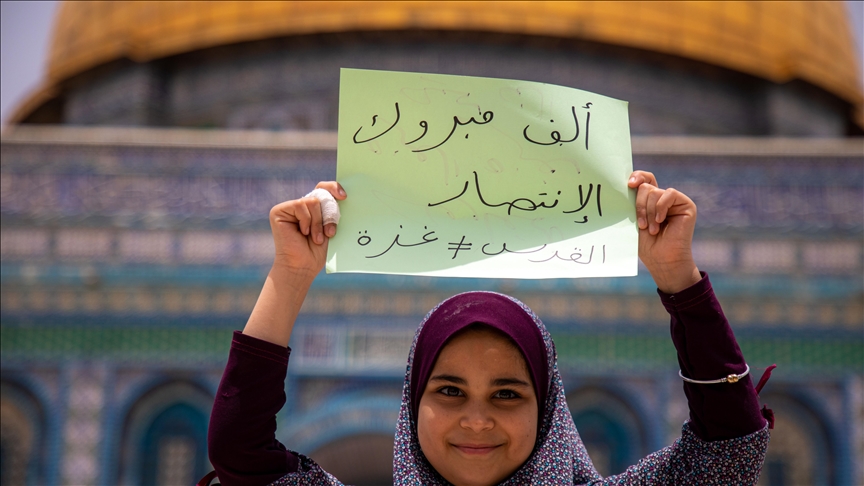 ألف مبروك
الإنتصار
القدس#غزة